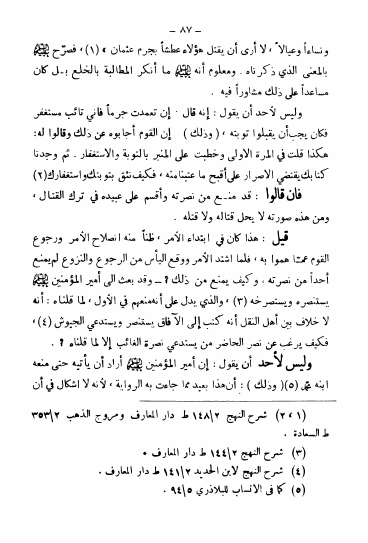 — ٨٧ —
ونساءاً وعيالاً ، لا أرى أن يقتل هؤلاء عطشاً بجرم عثمان » (١) ، فصرّح ﷺ
بالمعنى الذي ذكرناه . ومعلوم أنه ﷺ ما أنكر المطالبة بالخلع بـل كان
مساعداً على ذلك مشاوراً فيه .
وليس لأحد أن يقول : إنه قال · إن تعمدت جرماً فاني تائب مستغفر
فكان يجب أن يقبلوا توبته ، (وذلك ) إن القوم أجابوه عن ذلك وقالوا له :
هكذا قلت في المرة الاولى وخطبت على المنبر بالتوبة والاستغفار . ثم وجدنا
كتابك يقتضي الاصرار على أقبح ما عتبنا منه ، فكيف نثق بتوبتك واستغفارك (٢)
فان قالوا : قد منـع من نصرته وأقسم على عبيده في ترك القتال ،
ومن هذه صورته لا يحل قتاله ولا قتله .
قيل : هذا كان في ابتداء الأمر ، ظناً منه انصلاح الأمر ورجوع
القوم عمـّا هموا به ، فلما اشتد الأمر ووقع اليأس من الرجوع والنزوع لم يمنع
أحداً من نصرته ، وكيف يمنع من ذلك ? ــ وقد بعث الى أمير المؤمنين ﷺ
يستنصره ويستصرخه (٣) ، والذي يدل على أنه منعهم في الأول ، لما قلناه : أنه
لا خلاف بين أهل النقل أنه كتب إلى الآفاق يستنصر ويستدعي الجيوش (٤) ،
فكيف يرغب عن نصر الحاضر من يستدعي نصرة الغائب إلا لما قلناه ؟ .
وليس لأحد أن يقول : إن أمير المؤمنين ﷺ أراد أن يأتيه حتى منعه
ابنه محمد (٥) (وذلك ) : أن هذا بعيد مما جاءت به الرواية ، لأنه لا اشكال في أن
(١ ، ٢) شرح النهج ١٤٨/٢ ط دار المعارف ومروج الذهب ٣٥٣/٢
ط السعادة .
(٣) شرح النهج ١٤٤/٢ ط دار المعارف .
(٤) شرح النهج لابن الحديد ١٤١/٢ ط دار المعارف .
(٥) كما في الانساب للبلاذري ٩٤/٥ .